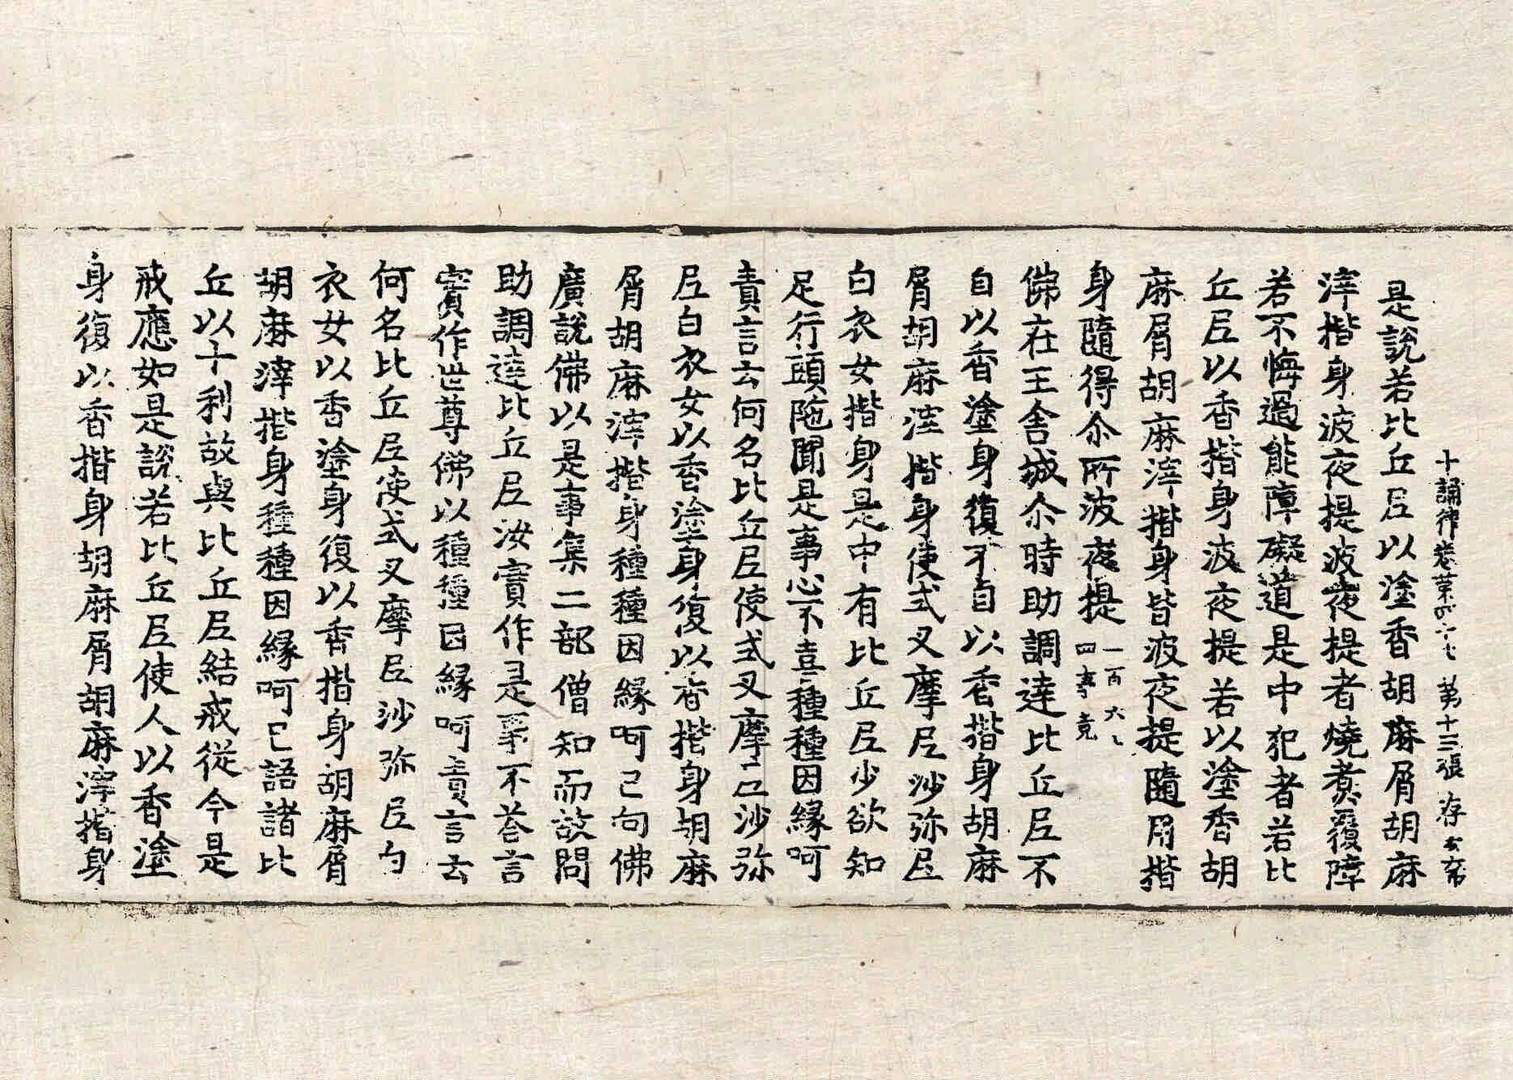 十誦律卷第四十七 第十三張 存字号
是說若比丘尼以塗香胡麻屑胡麻
滓揩身波夜提波夜提者燒煑覆障
若不悔過能障礙道是中犯者若比
丘尼以香揩身波夜提若以塗香胡
麻屑胡麻滓揩身皆波夜提隨用揩
身隨得尒所波夜提 一百六十四事竟
佛在王舍城尒時助調達比丘尼不
自以香塗身復不自以香揩身胡麻
屑胡麻滓揩身使式叉摩尼沙弥尼
白衣女揩身是中有比丘尼少欲知
足行頭陁聞是事心不喜種種因緣呵
責言云何名比丘尼使式叉摩尼沙弥
尼白衣女以香塗身復以香揩身胡麻
屑胡麻滓揩身種種因緣呵已向佛
廣說佛以是事集二部僧知而故問
助調達比丘尼汝實作是事不荅言
實作世尊佛以種種因緣呵責言云
何名比丘尼使式叉摩尼沙弥尼白
衣女以香塗身復以香揩身胡麻屑
胡麻滓揩身種種因緣呵已語諸比
丘以十利故與比丘尼結戒從今是
戒應如是說若比丘尼使人以香塗
身復以香揩身胡麻屑胡麻滓揩身